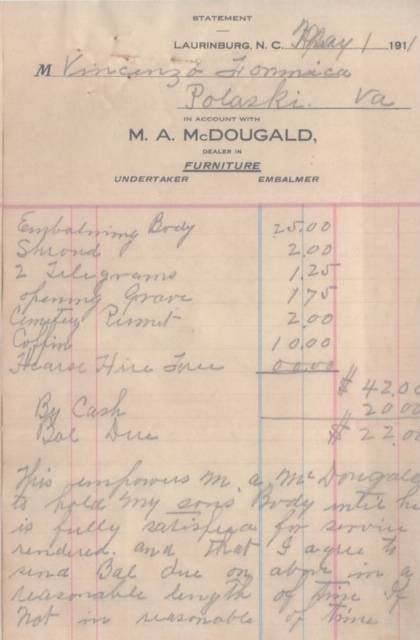 STATEMENT
LAURINBURG, N. C. May 1 1911
M Vincenzo Formica
Polaski. Va
IN ACCOUNT WITH
M. A. McDOUGALD,
DEALER IN
FURNITURE
UNDERTAKER EMBALMER
Embalming Body 25.00
Shroud 2.00
2 Telegrams 1.25
opening Grave 1.75
Cemetery Permit 2.00
Coffin 10.00
Hearse Hire Free 00.00
$ 42.00
By Cash 20 00
Bal Due $ 22.00
This empowers M. a. McDougald
to hold my sons Body until he
is fully satisfied for service
rendered. and that I agree to
send Bal due on above in a
reasonable length of time If
not in reasonable of time